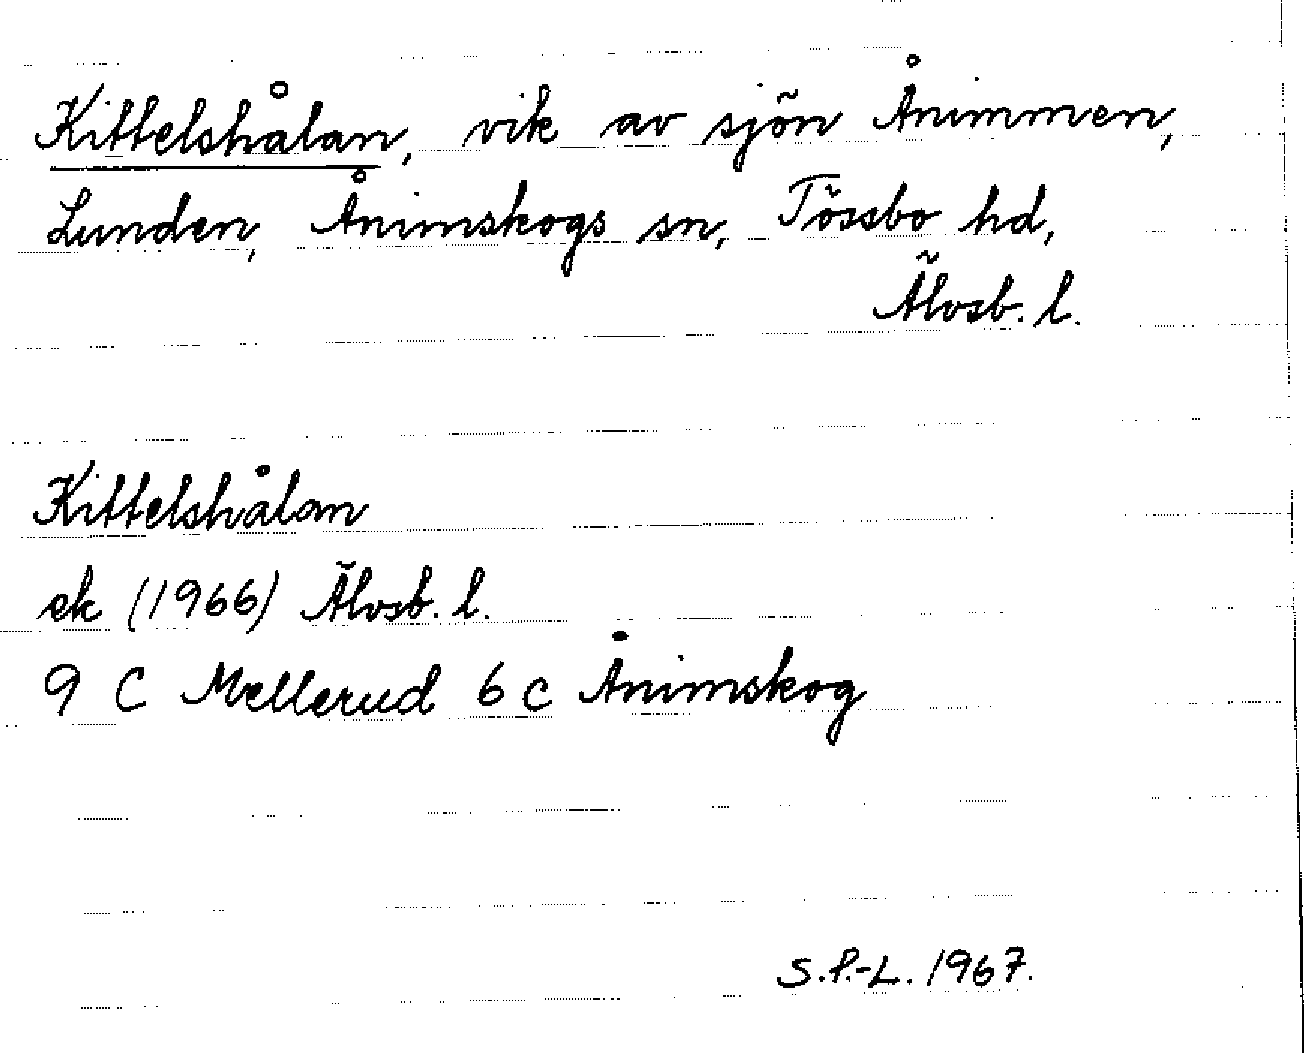 Kittelshålan, vik av sjön Ånimmen,
Lunden, Ånimskogs sn, Tössbo hd,
Älvsb. l.
Kittelshålan
ek (1966) Älvsb. l.
9 C Mellerud 6 c Ånimskog
S.P.-L. 1967.